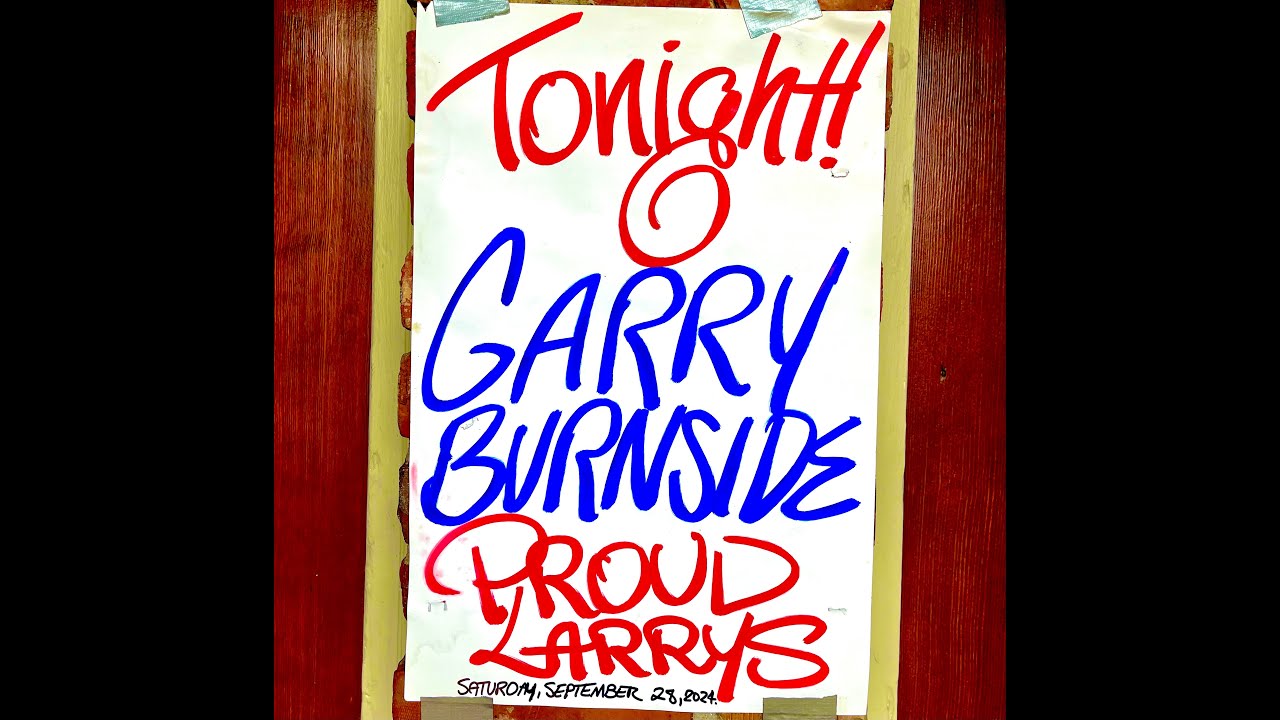 Tonight!
GARRY
BURNSIDE
PROUD
LARRYS
SATURDAY, SEPTEMBER 28, 2024.